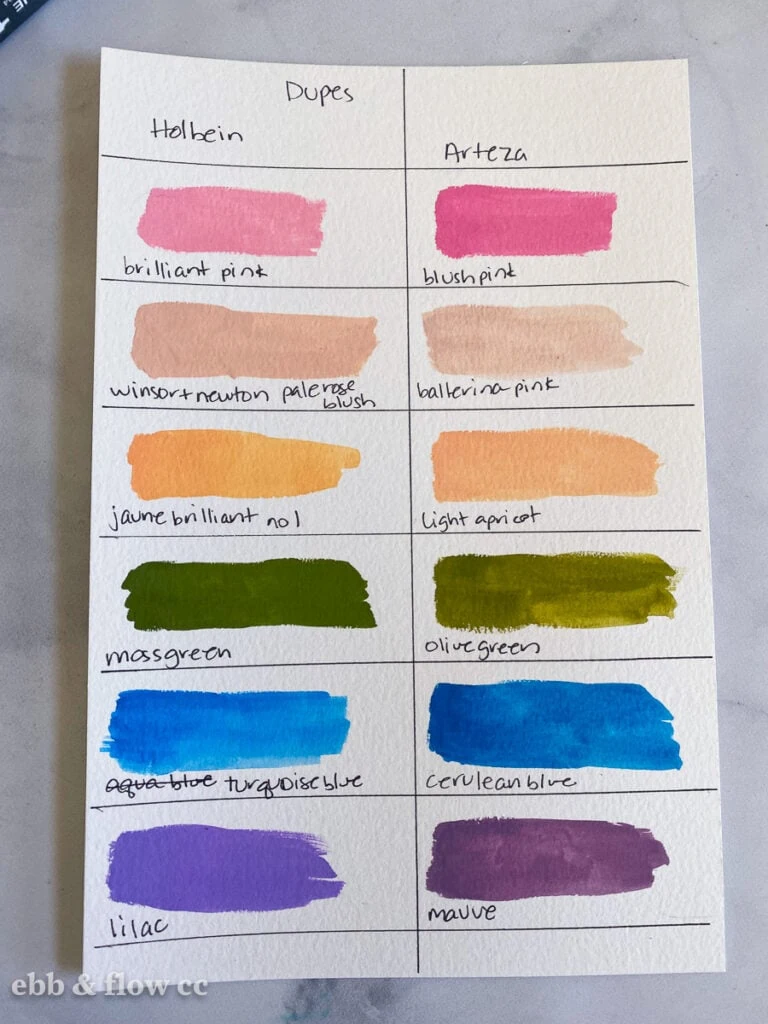 Dupes
Holbein
Arteza
brilliant pink
blush pink
winsor+newton pale rose
blush
ballerina pink
jaune brilliant no 1
light apricot
moss green
olive green
aqua blue turquoise blue
cerulean blue
lilac
mauve
ebb & flow cc